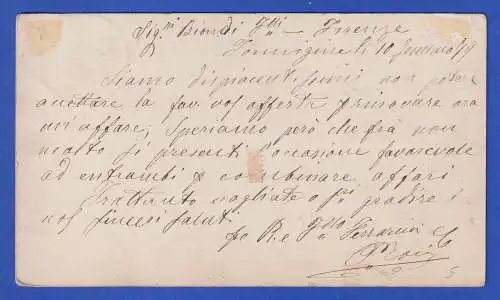 Sig.ri Biondi F.lli — Firenze
Formigine li 10 Gennaro 79
Siamo dispiacentissimi non potere
accettare la fav. vos offerta p rinovare ora
un affare; Speriamo però che frà non
molto si presenti l'occasione favorevole
ad entrambi p combinare affari
Frattanto vogliate gradire i
nos sinceri saluti
p R.e Ferrarini